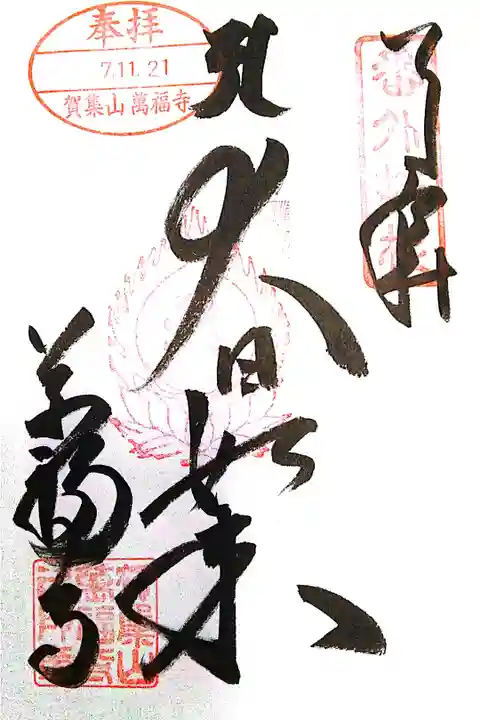 奉拝
大日如来
萬福寺
奉拝
7.11.21
賀集山 萬福寺